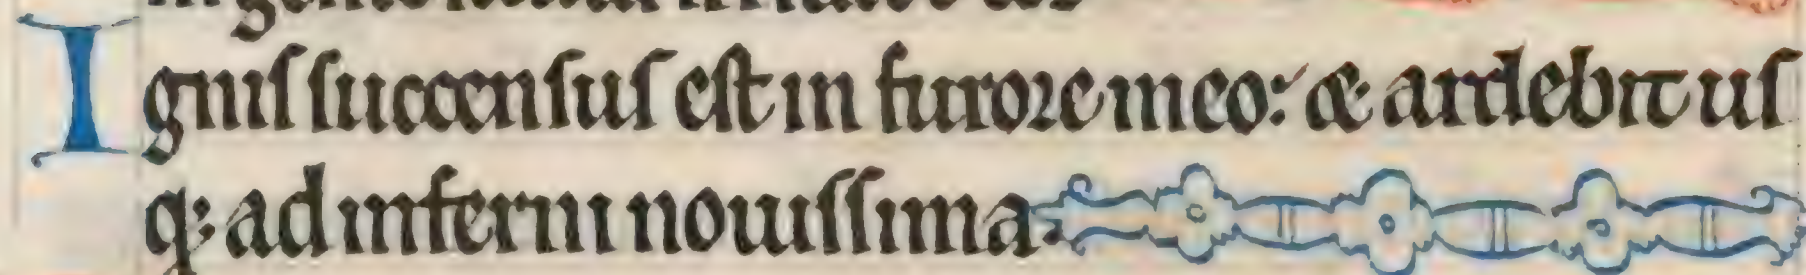 Ignis succensus est in furore meo: & ardebit us
q; ad inferni nouissima.